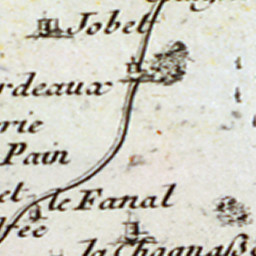 Jobet
rdeaux
rie
Pain
el
le Fanal
rée
la Chagnaß